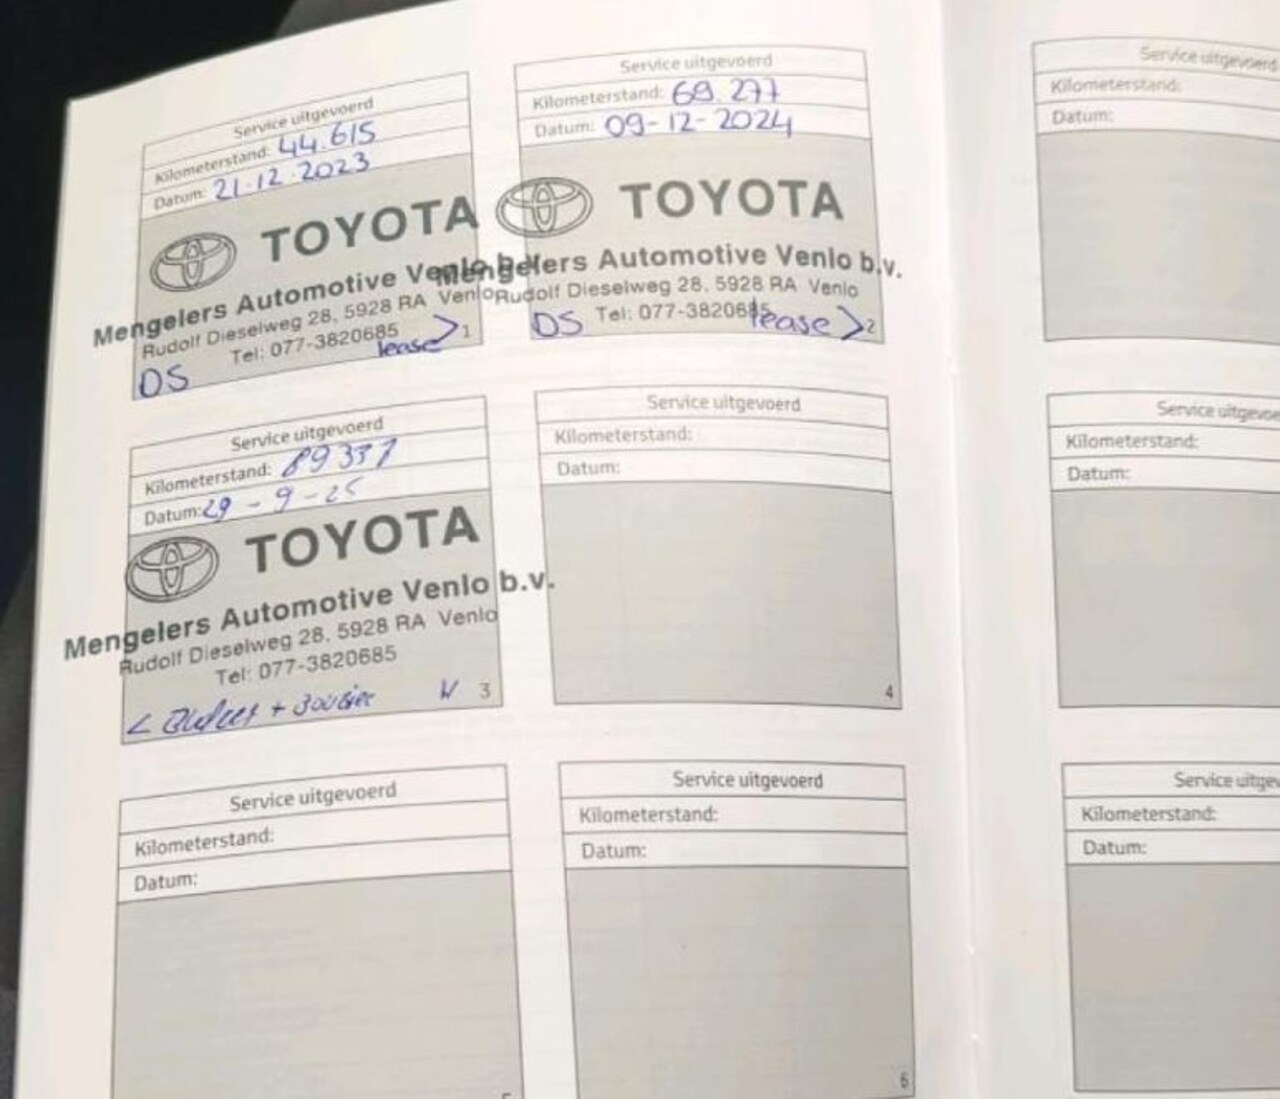 Service uitgevoerd
Kilometerstand: 44.615
Datum: 21.12.2023
TOYOTA
Mengelers Automotive Venlo b.v.
Rudolf Dieselweg 28, 5928 RA Venlo
Tel: 077-3820685
lease > 1
DS
Service uitgevoerd
Kilometerstand: 69.277
Datum: 09-12-2024
TOYOTA
Mengelers Automotive Venlo b.v.
Rudolf Dieselweg 28, 5928 RA Venlo
Tel: 077-3820685
DS lease > 2
Service uitgevoerd
Kilometerstand: 89337
Datum: 29-9-25
TOYOTA
Mengelers Automotive Venlo b.v.
Rudolf Dieselweg 28, 5928 RA Venlo
Tel: 077-3820685
3
Service uitgevoerd
Kilometerstand:
Datum:
4
Service uitgevoerd
Kilometerstand:
Datum:
Service uitgevoerd
Kilometerstand:
Datum:
6
Service uitgevoerd
Kilometerstand:
Datum:
Service uitgevoe
Kilometerstand:
Datum:
Service uitgev
Kilometerstand:
Datum: